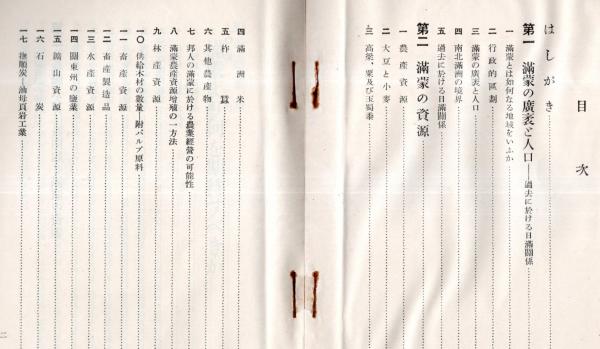 目次
はしがき
第一 滿蒙の廣袤と人口―過去に於ける日滿關係
一 滿蒙とは如何なる地域をいふか
二 行政的區劃
三 滿蒙の廣袤と人口
四 南北滿洲の境界
五 過去に於ける日滿關係
第二 滿蒙の資源
一 農產資源
二 大豆と小麥
三 高粱、粟及び玉蜀黍
四 滿洲米
五 柞蠶
六 其他農產物
七 邦人の滿蒙に於ける農業經營の可能性
八 滿蒙農產資源增殖の一方法
九 林產資源
一〇 供給木材の數量 附パルプ原料
一一 畜產資源
一二 畜產製造品
一三 水產資源
一四 關東州の鹽業
一五 鑛山資源
一六 石炭
一七 撫順炭―油母頁岩工業
二